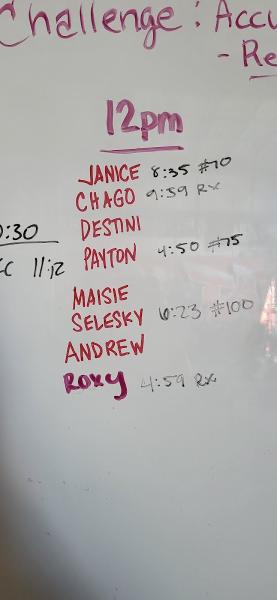 Challenge: Accu
- Re
12pm
JANICE 8:35 #70
CHAGO 9:59 Rx
DESTINI
PAYTON 4:50 #75
MAISIE
SELESKY 6:23 #100
ANDREW
Roxy 4:59 Rx
0:30
11:12